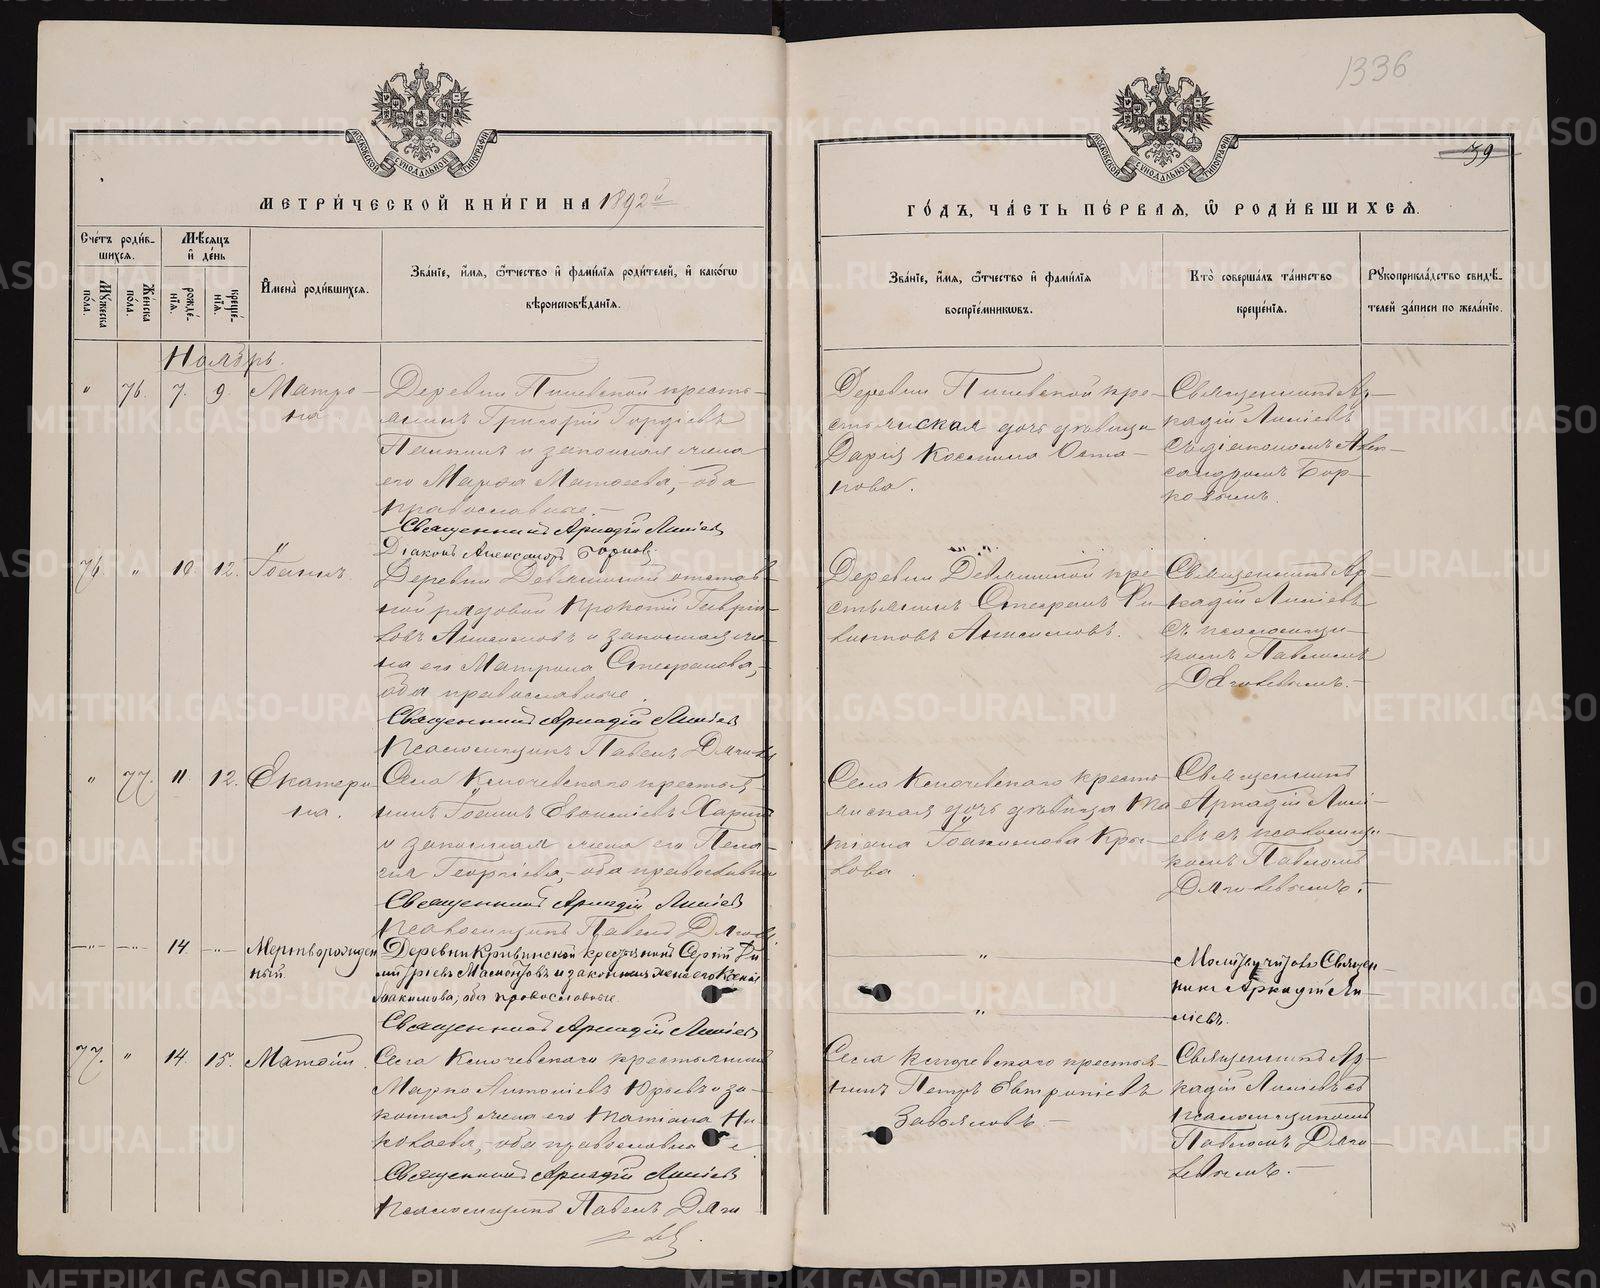 1336
39
МОСКОВСКОЙ СУНОДАЛЬНОЙ ТИПОГРАФІИ
МОСКОВСКОЙ СУНОДАЛЬНОЙ ТИПОГРАФІИ
МЕТРИ́ЧЕСКОЙ КНИ́ГИ НА 1892й
ГО́ДЪ, ЧА́СТЬ ПЕ́РВАЯ, Ѽ РОДИ́ВШИХСЯ.
Сче́тъ роди́в-
шихся.
Мꙋжеска по́ла.
Же́нска по́ла.
Мѣ́сяцъ
и҆ де́нь
рожде́-
нїѧ.
креще́-
нїѧ.
И҆мена̀ роди́вшихся.
Зва́нїе, и҆́мя, ѻ҆́тчество и҆ фами́лїя роди́телей, и҆ како́гѡ
вѣроисповѣ́данїя.
Зва́нїе, и҆́мя, ѻ҆́тчество и҆ фами́лїя
воспрїе́мникѡвъ.
Кто̀ соверша́лъ та́инство
креще́нїя.
Рꙋкоприкла́дство свидѣ́-
телей за́писи по жела́нїю.
Ноябрь.
" 76. 7. 9. Матро-
на
Деревни Пиневской кресть-
янинъ Григорій Гордіевъ
и законная жена
его Марѳа Матѳеева, оба
православные.
Священникъ Аркадій Линіевъ
Діаконъ Александръ Борковъ
Деревни Пиневской кре-
стьянская дочь дѣвица
Дарія Косьмина
Священникъ Ар-
кадій Линіевъ
съ діакономъ Алек-
сандромъ Бор-
ковымъ.
76. " 10. 12. Іоаннъ.
Деревни Девяшиной отстав-
ной рядовой Прокопій Гаврі-
ловъ Анисимовъ и законная же-
на его Матрона Стефанова,
оба православные.
Священникъ Аркадій Линіевъ
Псаломщикъ Павелъ
Деревни Девяшиной кре-
стьянинъ Стефанъ Фи-
липповъ Анисимовъ.
Священникъ Ар-
кадій Линіевъ
съ псаломщи-
комъ Павломъ
" 77. 11. 12. Екатери-
на.
Села Ключевскаго крестья-
нинъ Іоаннъ
и законная жена его Пела-
гія Георгіева, оба православные
Священникъ Аркадій Линіевъ
Псаломщикъ Павелъ
Села Ключевскаго кресть-
янская дочь дѣвица Та-
тіана Іоакимова Кры-
лова
Священникъ
Аркадій Лині-
евъ съ псаломщи-
комъ Павломъ
14. Мертворожден-
ный
Деревни Кривинской крестьянинъ Сергій
и законная жена его Ксенія
Іоакимова, оба православные.
Священникъ Аркадій Линіевъ
"
"
Молитву читовъ Священ-
никъ Аркадій Ли-
ніевъ.
77. " 14. 15. Матѳій.
Села Ключевскаго крестьянинъ
Марко Антоніевъ Юрьевъ и за-
конная жена его Татіана Ни-
колаева, оба православные.
Священникъ Аркадій Линіевъ
Псаломщикъ Павелъ
Села Ключевскаго крестья-
нинъ Петръ Евтропіевъ
Завьяловъ.
Священникъ Ар-
кадій Линіевъ съ
псаломщикомъ
Павломъ
METRIKI.GASO-URAL.RU